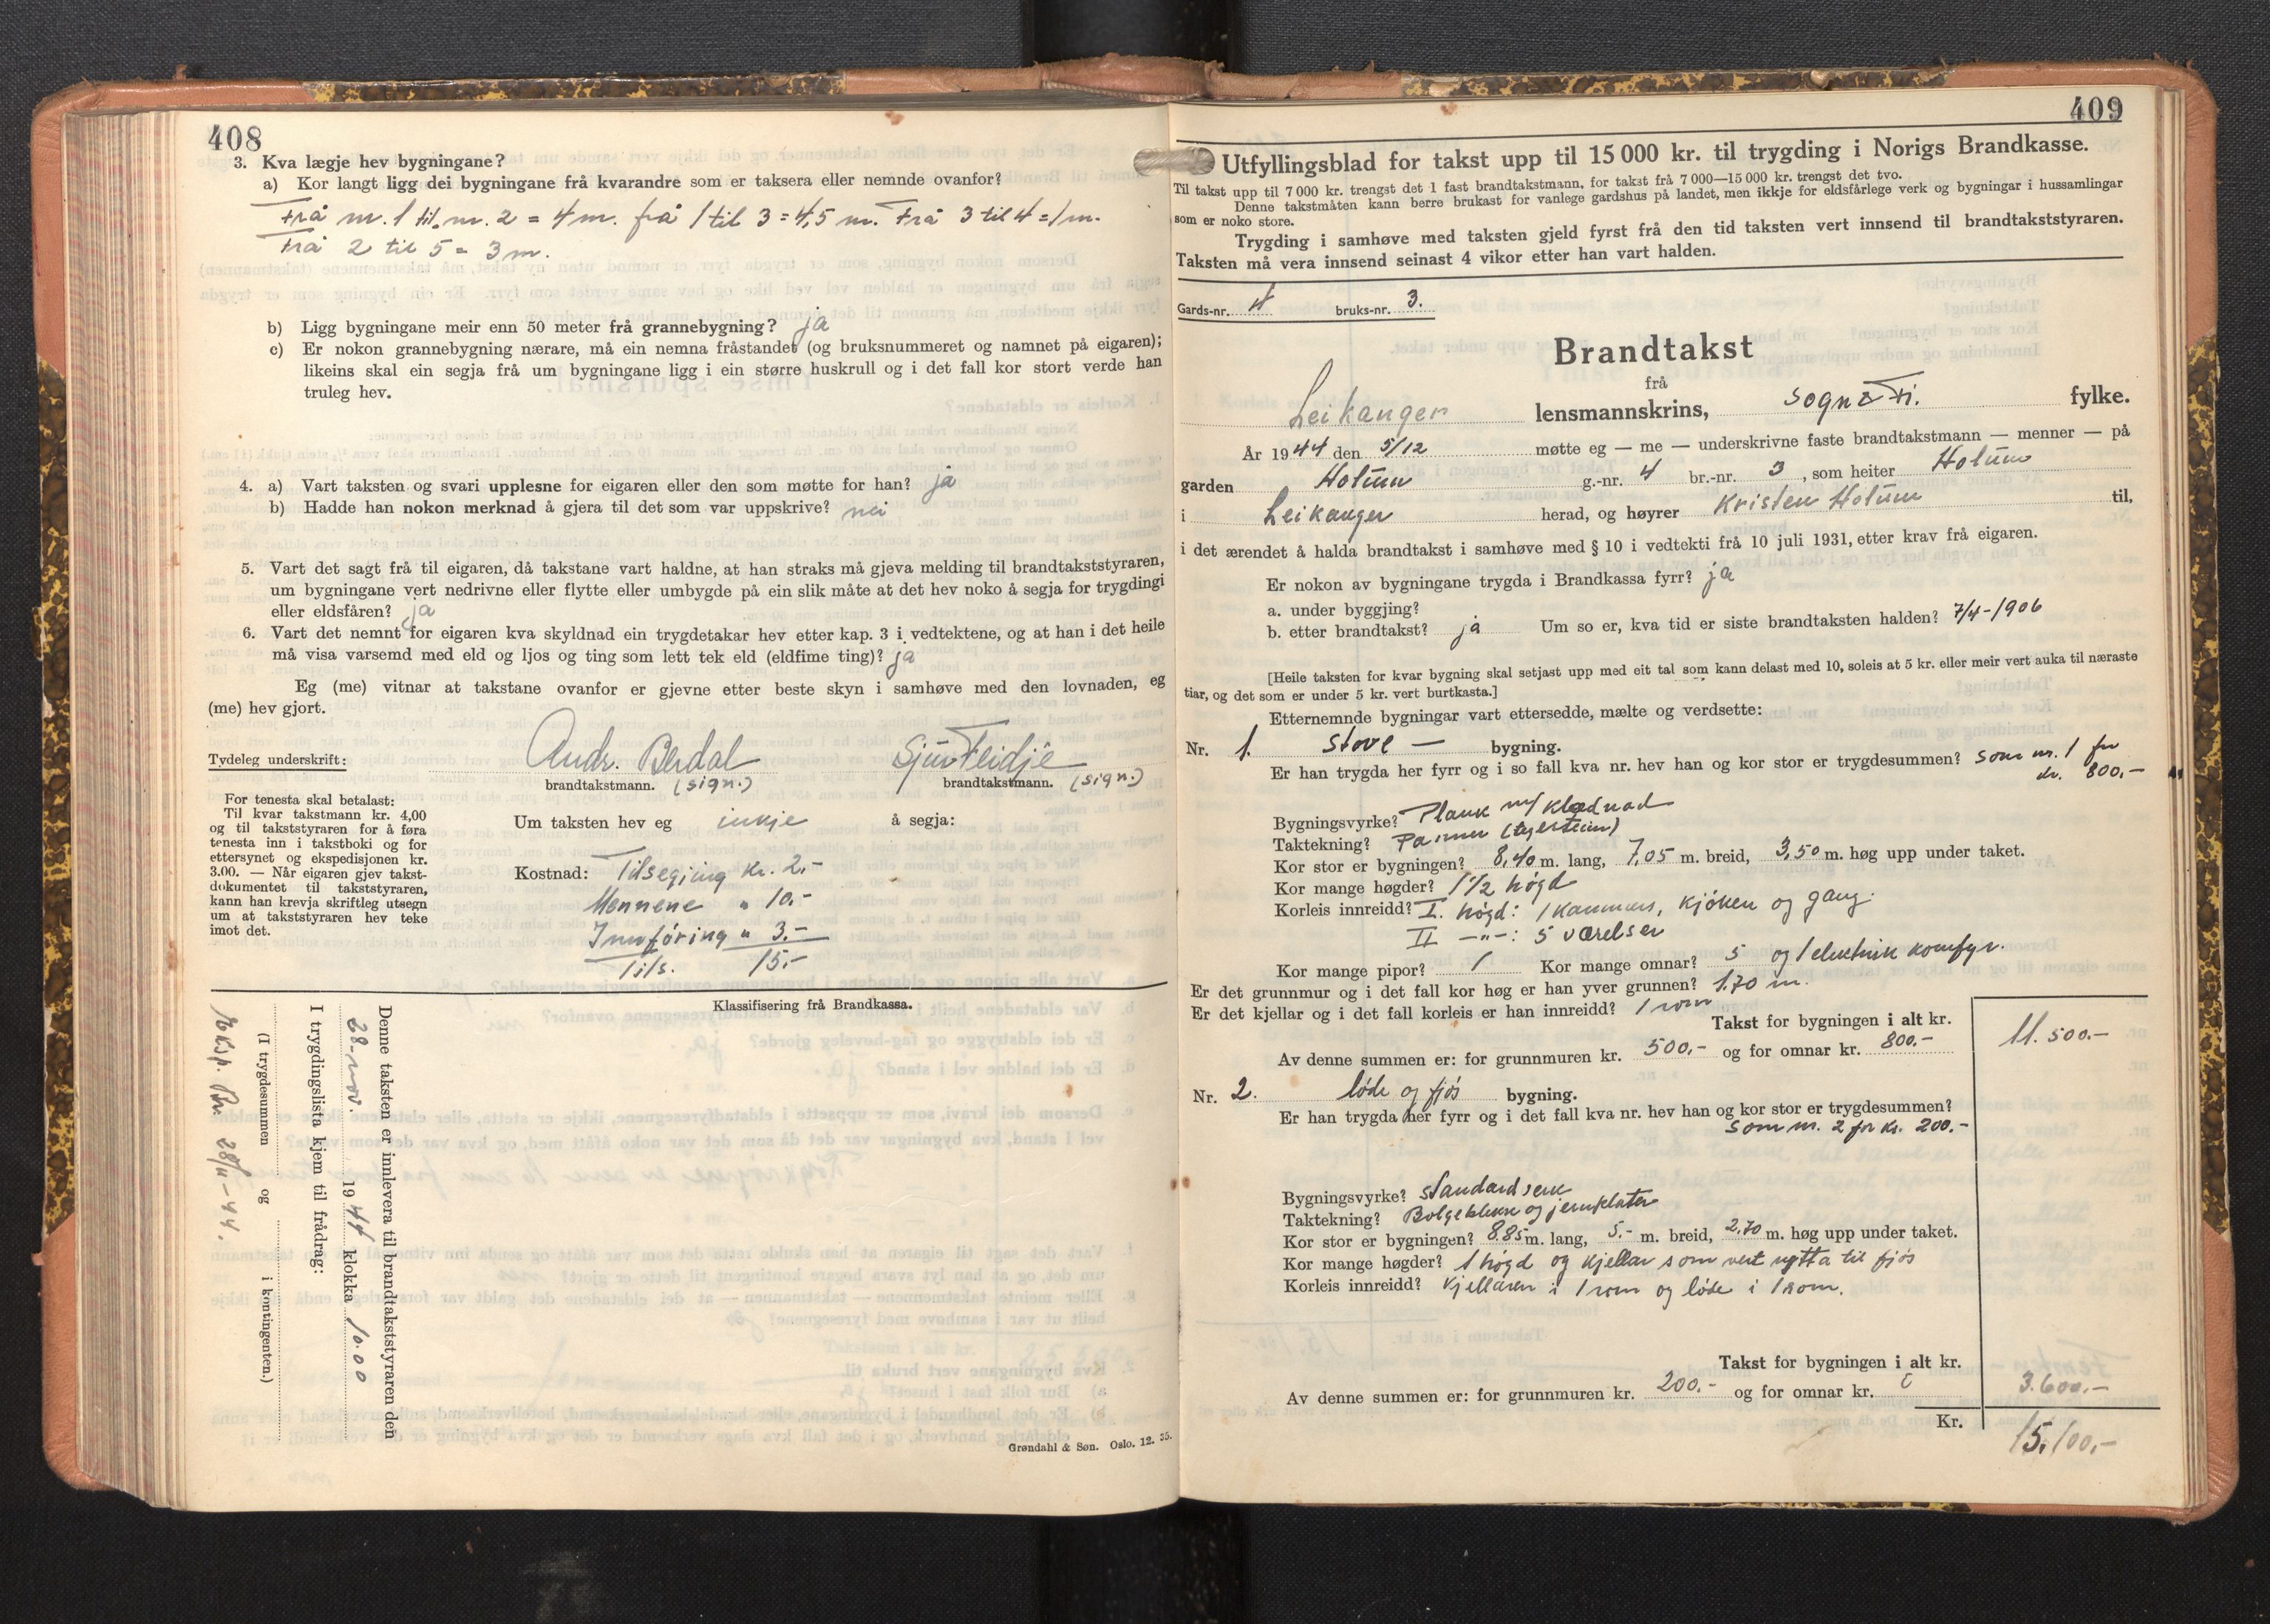 408
3. Kva lægje hev bygningane?
a) Kor langt ligg dei bygningane frå kvarandre som er taksera eller nemnde ovanfor?
Frå nr. 1 til nr. 2 = 4 m. frå 1 til 3 = 4,5 m. Frå 3 til 4 = 1 m.
Frå 2 til 5 = 3 m.
b) Ligg bygningane meir enn 50 meter frå grannebygning? ja
c) Er nokon grannebygning nærare, må ein nemna fråstandet (og bruksnummeret og namnet på eigaren);
likeins skal ein segja frå um bygningane ligg i ein større huskrull og i det fall kor stort verde han
truleg hev.
4. a) Vart taksten og svari upplesne for eigaren eller den som møtte for han? ja
b) Hadde han nokon merknad å gjera til det som var uppskrive? nei
5. Vart det sagt frå til eigaren, då takstane vart haldne, at han straks må gjeva melding til brandtakststyraren,
um bygningane vert nedrivne eller flytte eller umbygde på ein slik måte at det hev noko å segja for trygdingi
eller eldsfåren? ja
6. Vart det nemnt for eigaren kva skyldnad ein trygdetakar hev etter kap. 3 i vedtektene, og at han i det heile
må visa varsemd med eld og ljos og ting som lett tek eld (eldfime ting)? ja
Eg (me) vitnar at takstane ovanfor er gjevne etter beste skyn i samhøve med den lovnaden, eg
(me) hev gjort.
Tydeleg underskrift: Andr. Berdal Sjur Feidje
brandtakstmann. (sign.) brandtakstmann. (sign.)
For tenesta skal betalast:
Til kvar takstmann kr. 4,00
og til takststyraren for å føra
tenesta inn i takstboki og for
ettersynet og ekspedisjonen kr.
3.00. — Når eigaren gjev takst-
dokumentet til takststyraren,
kann han krevja skriftleg utsegn
um at takststyraren hev teke
imot det.
Um taksten hev eg inkje å segja:
Kostnad: Tilsegjing kr. 2,-
Mennene " 10.-
Innføring " 3.-
Tils. 15.-
Klassifisering frå Brandkassa.
Denne taksten er innlevera til brandtakststyraren den
28-nov. 1944 klokka 10.00
I trygdingslista kjem til frådrag:
(I trygdesummen og i kontingenten.)
Eksp. Br. 28/11-44.
Grøndahl & Søn. Oslo. 12. 35.
409
Utfyllingsblad for takst upp til 15 000 kr. til trygding i Norigs Brandkasse.
Til takst upp til 7 000 kr. trengst det 1 fast brandtakstmann, for takst frå 7 000—15 000 kr. trengst det tvo.
Denne takstmåten kann berre brukast for vanlege gardshus på landet, men ikkje for eldsfårlege verk og bygningar i hussamlingar
som er noko store.
Trygding i samhøve med taksten gjeld fyrst frå den tid taksten vert innsend til brandtakststyraren.
Taksten må vera innsend seinast 4 vikor etter han vart halden.
Gards-nr. 4 bruks-nr. 3.
Brandtakst
frå
Leikanger lensmannskrins, Sogn & Fj. fylke.
År 1944 den 5/12 møtte eg — me — underskrivne faste brandtakstmann — menner — på
garden Holum g.-nr. 4 br.-nr. 3, som heiter Holum
i Leikanger herad, og høyrer Kristen Holum til,
i det ærendet å halda brandtakst i samhøve med § 10 i vedtekti frå 10 juli 1931, etter krav frå eigaren.
Er nokon av bygningane trygda i Brandkassa fyrr? ja
a. under byggjing?
b. etter brandtakst? ja Um so er, kva tid er siste brandtaksten halden? 7/4-1906
[Heile taksten for kvar bygning skal setjast upp med eit tal som kann delast med 10, soleis at 5 kr. eller meir vert auka til næraste
tiar, og det som er under 5 kr. vert burtkasta.]
Etternemnde bygningar vart ettersedde, mælte og verdsette:
Nr. 1. Stove — bygning.
Er han trygda her fyrr og i so fall kva nr. hev han og kor stor er trygdesummen? Som nr. 1 for
kr. 800,-
Bygningsvyrke? Plank m/ klædnad
Taktekning? Panner (teglsteinn)
Kor stor er bygningen? 8,40 m. lang, 7,05 m. breid, 3,50 m. høg upp under taket.
Kor mange høgder? 1 1/2 høgd
Korleis innreidd? I. høgd: 1 kammers, kjøken og gang.
II —"—: 5 værelser
Kor mange pipor? 1 Kor mange omnar? 5 og 1 elektrisk komfyr.
Er det grunnmur og i det fall kor høg er han yver grunnen? 1.70 m.
Er det kjellar og i det fall korleis er han innreidd? 1 rom
Takst for bygningen i alt kr. 11.500.-
Av denne summen er: for grunnmuren kr. 500,- og for omnar kr. 800.-
Nr. 2. løde og fjøs bygning.
Er han trygda her fyrr og i det fall kva nr. hev han og kor stor er trygdesummen?
Som nr. 2 for kr. 200.-
Bygningsvyrke? Standardverk
Taktekning? Bølgeblekk og jernplater
Kor stor er bygningen? 8.85 m. lang, 5.- m. breid, 2.70 m. høg upp under taket.
Kor mange høgder? 1 høgd og kjellar som vert nytta til fjøs
Korleis innreidd? Kjellaren i 1 rom og løde i 1 rom.
Takst for bygningen i alt kr. 3.600.-
Av denne summen er: for grunnmuren kr. 200.- og for omnar kr.
Kr. 15,100,-